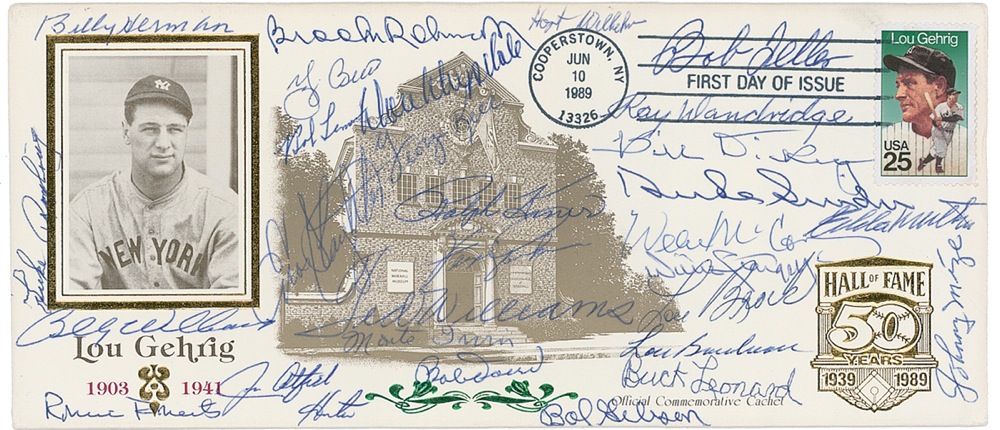 Billy Herman
Hoyt Wilhelm
Bob Feller
Lou Gehrig
USA
25
COOPERSTOWN, NY
JUN
10
1989
13326
FIRST DAY OF ISSUE
Ray Dandridge
Bill Dickey
Duke Snider
Don Drysdale
George Kell
Bob Lemon
Yogi Berra
Ralph Kiner
NEW YORK
NATIONAL
BASEBALL
MUSEUM
Willie McCovey
Willie Stargell
Eddie Mathews
Lou Brock
Ted Williams
Monte Irvin
Billy Williams
Lou Gehrig
1903 1941
HALL OF FAME
50
YEARS
1939 1989
Lou Boudreau
Buck Leonard
Official Commemorative Cachet
Bob Gibson
Hunter